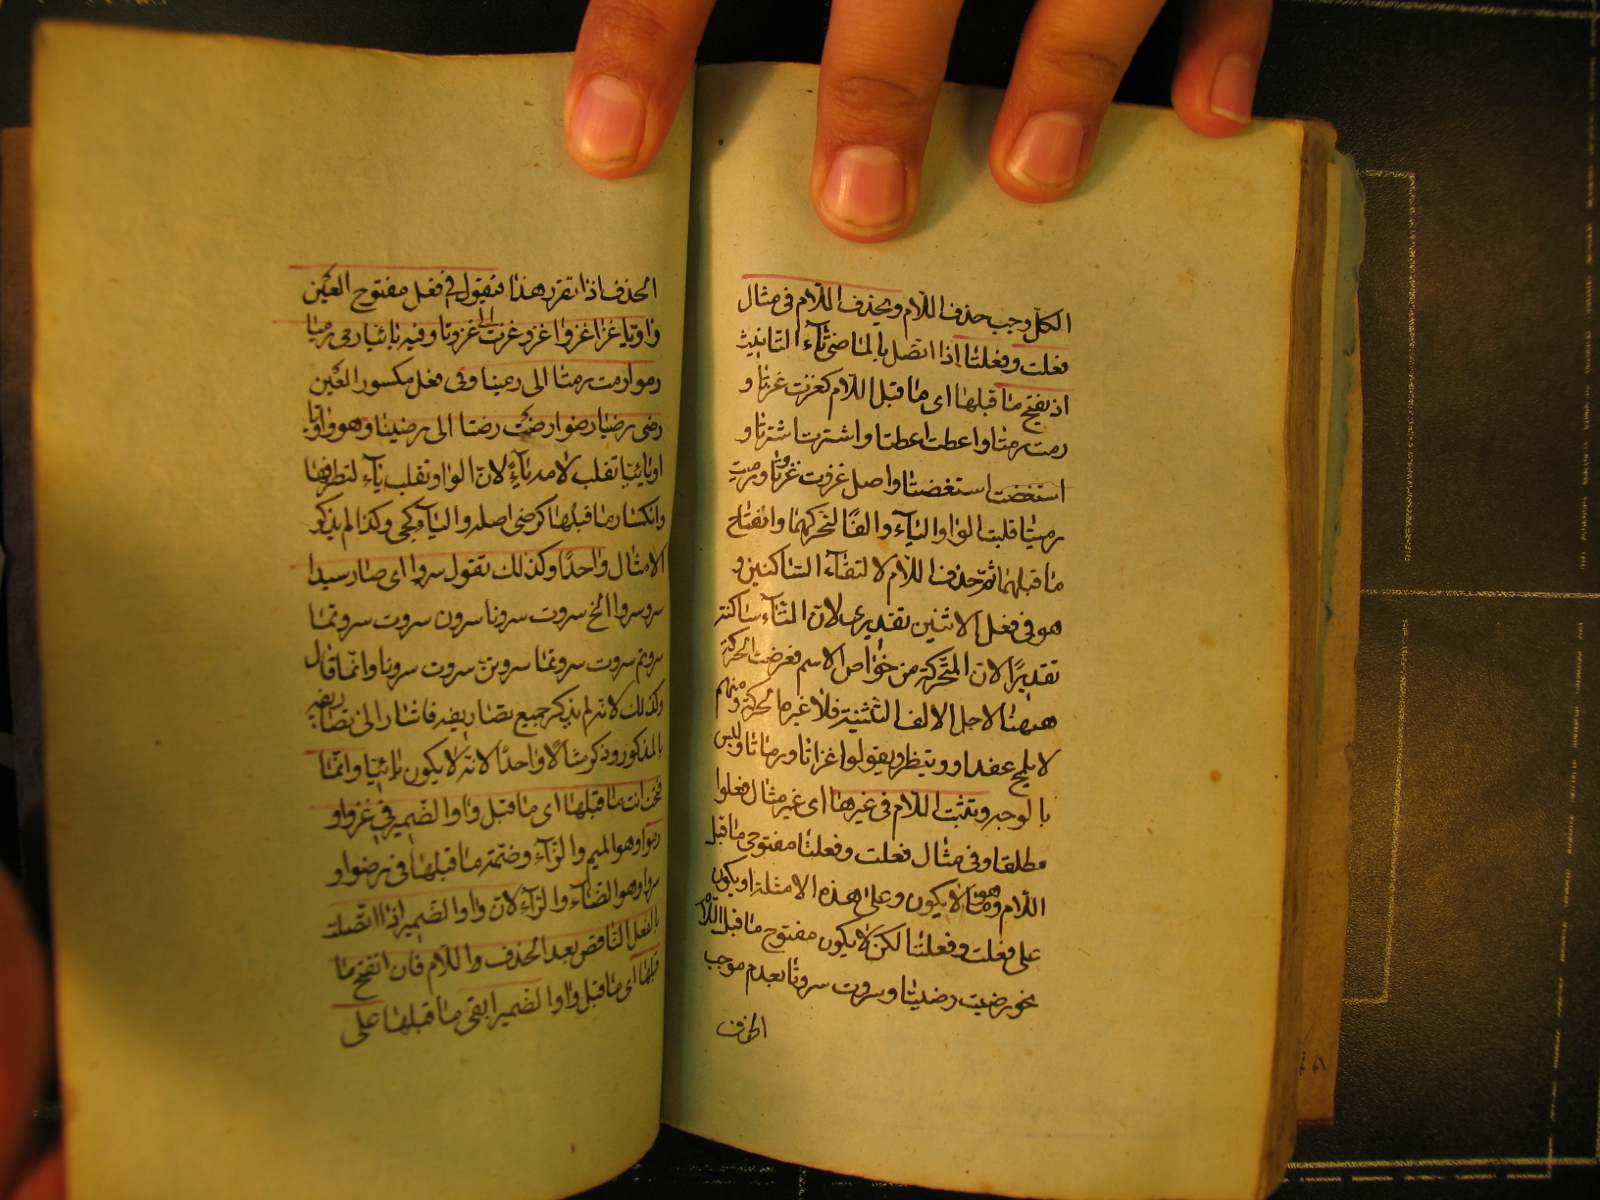 الكل وجب حذف اللام ويحذف اللام فى مثال
فعلت وفعلتا اذا اتصل بالماضى تاء التانيث
اذ يفتح ما قبلها اى ما قبل اللام كغزت غزتا و
رمت رمتا واعطت اعطتا واشترت اشترتا و
استغضت استغضتا واصل غزوت غزوتا ورميت
رميتا قلبت الواو والياء والفا لتحركهما وانفتاح
ما قبلهما ثم حذف اللام لا لتقاء الساكنين و
هو فى فعل الاثنين تقديرى لان التاء ساكنة
تقديرًا لان المتحركة من خواص الاسم فعرضت الحركة
ههنا لاجل الالف التثنية فلا غيرما لحركة ومنهم
لا يلمح ويقولوا غزاتا ورماتا وليس
بالوجه وتثبت اللام فى غيرها اى غير مثال فعلوا
مطلقا وفى مثال فعلت وفعلتا مفتوحى ما قبل
اللام وهو ما لا يكون وعلى هذه الامثلة او يكون
على فعلت وفعلتا لكن لا يكون مفتوح ما قبل اللام
نحو رضيت رضيتا وسروت سروتا لعدم موجب
الحذف
الحذف اذا تقرر هذا فنقول فى فعل مفتوح العين
واويا غزا غزوا غزوا غزت الى غزونا وفيه يائيا رمى رميا
رموا رمت رمتا الى رمينا وفى فعل مكسور العين
رضى رضيا رضوا رضيت رضيتا الى رضينا وهو واويا
او يائيا تقلب لامه ياء لان الواو تقلب ياء لتطرفها
وانكسار ما قبلها كرضى اصله والياء وكذا لم يذكر
الامثال واحدًا وكذلك تقول سروا اى صار سيدا
سرو سروا الخ سروت سرونا سرون سروت سروتما
سروتم سروت سروتما سروتن سروت سرونا وانما قال
وكذلك لانه لم يذكر جميع تصاريفه فاشار الى تصاريفه
بالمذكور وذكر مثالا واحدًا لانه لا يكون يائيا وانما
فتحت انت ما قبلها اى ما قبل واو الضمير فى غزوا و
رموا وهو الميم والزاء وضمة ما قبلها فى رضوا و
سروا وهو الضاء والراء لان واو الضمير اذا اتصلت
بالفعل الناقص بعد الحذف واللام فان انفتح ما
قبلها اى ما قبل واو الضمير ابقى ما قبلها على